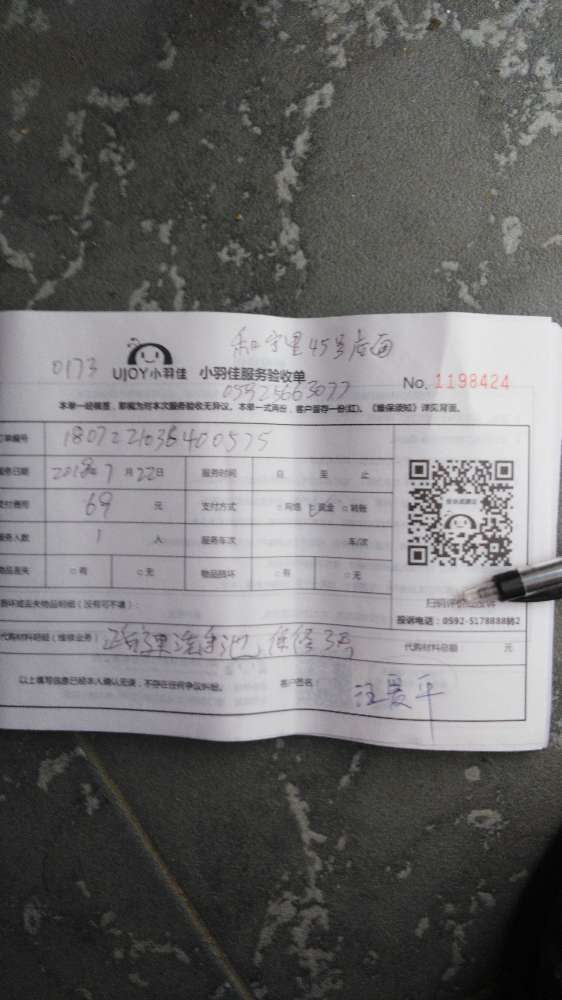 和宁里45号后面
0173 UJOY小羽佳 小羽佳服务验收单 No. 1198424
05925663077
本单一经签署,即视为对本次服务验收无异议。本单一式两份,客户留存一份(红)。《维保须知》详见背面。
订单编号 180722103 400575
服务日期 2018年7月22日 服务时间 自 至 止
支付费用 69 元 支付方式 □网络 □现金 □转账
服务人数 1 人 服务车次 车/次
物品丢失 □有 □无 物品损坏 □有 □无
损坏或丢失物品明细(没有可不填):
扫码评价或投诉
投诉电话:0592-5178888转2
代购材料明细(维修业务) 代购材料总额 元
以上填写信息已经本人确认无误,不存在任何争议纠纷。 客户签名: 汪爱平